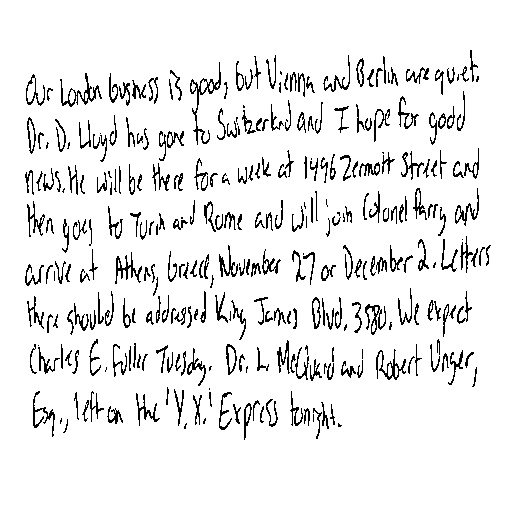 Our London business is good, but Vienna and Berlin are quiet.
Dr. D. Lloyd has gone to Switzerland and I hope for good
news. He will be there for a week at 1496 Zermott Street and
then goes to Turin and Rome and will join Colonel Parry and
arrive at Athens, Greece, November 27 or December 2. Letters
there should be addressed King James Blvd. 3580. We expect
Charles E. Fuller Tuesday. Dr. L. McQuard and Robert Unger,
Esq., left on the 'Y.X.' Express tonight.